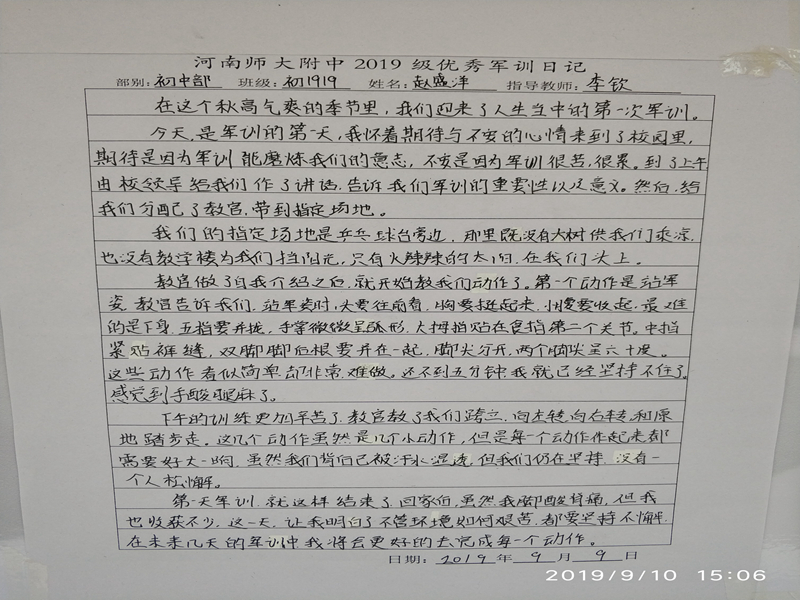 河南师大附中2019级优秀军训日记
部别:初中部 班级:初1919 姓名:赵盛洋 指导教师:李钦
在这个秋高气爽的季节里,我们迎来了人生当中的第一次军训。
今天,是军训的第一天,我怀着期待与不安的心情来到了校园里,
期待是因为军训能磨炼我们的意志,不安是因为军训很苦,很累。到了上午
由校领导给我们作了讲话,告诉我们军训的重要性以及意义。然后,给
我们分配了教官,带到指定场地。
我们的指定场地是乒乓球台旁边,那里既没有大树供我们乘凉,
也没有教学楼为我们挡阳光,只有火辣辣的太阳,在我们头上。
教官做了自我介绍之后,就开始教我们动作了。第一个动作是站军
姿,教官告诉我们,站军姿时,头要往前看,胸要挺起来,小腹要收起,最难
的是下身,五指要并拢,手掌微微呈弧形,大拇指贴在食指第二个关节。中指
紧贴裤缝,双脚脚后根要并在一起,脚尖分开,两个脚尖呈六十度。
这些动作看似简单,却非常难做。还不到五分钟,我就已经坚持不住了,
感觉到手酸腿麻了。
下午的训练更加辛苦了,教官教了我们跨立,向左转,向右转,和原
地踏步走。这几个动作虽然是几个小动作,但是每一个动作作起来都
需要好大一晌,虽然我们背白已被汗水湿透,但我们仍在坚持,没有一
个人松懈。
第一天军训,就这样结束了,回家后,虽然我脚酸背痛,但我
也收获不少,这一天,让我明白了不管环境如何艰苦,都要坚持不懈,
在未来几天的军训中我将会更好的去完成每一个动作。
日期:2019年9月9日
2019/9/10 15:06